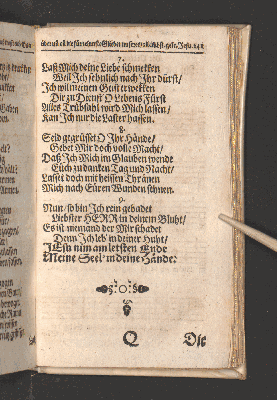 7.
Laß Mich deine Liebe schmekken
Weil Ich sehnlich nach Ihr dürst/
Ich wil meinen Geist erwekken
Dir zu Dienst O Lebens Fürst
Alles Trübsahl wird Mich lassen/
Kan Ich nur die Laster hassen.
8.
Seid gegrüsset O Ihr Hände/
Gebet Mir doch volle Macht/
Daß Ich Mich im Glauben wende
Euch zudanken Tag und Nacht/
Lasset doch mit heissen Thränen
Mich nach Eüren Wunden sehnen.
9.
Nun/ so bin Ich rein gebadet
Liebster HERR in deinem Bluht/
Es ist niemand der Mir schadet
Denn Ich leb' in deiner Huht/
JEsu nim am letsten Ende
Meine Seel' in deine Hände.
Q Die